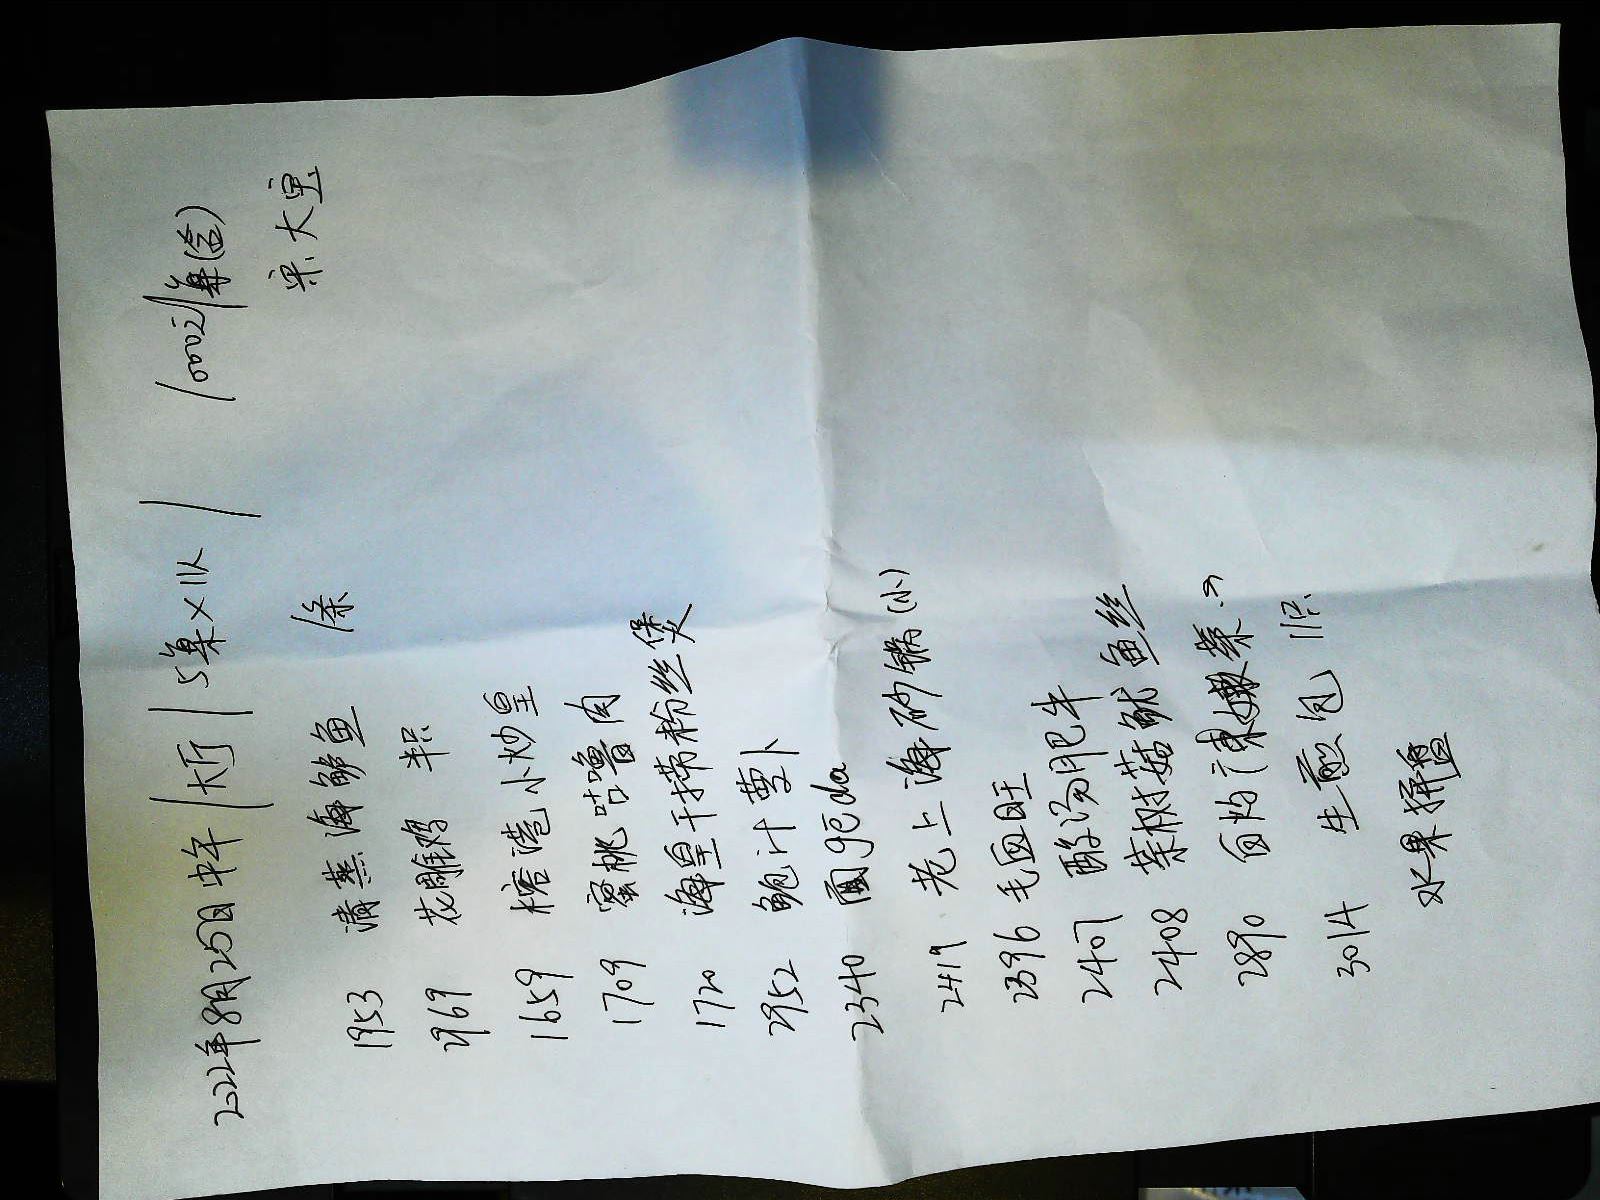 2022年8月25日中午 | 大厅 | 5桌×11人 | 1000元/桌(含)
梁大宝
1953 清蒸海鲈鱼 1条
2969 花雕鸡 半只
1659 避塘港小炒皇
1709 蜜桃咕噜肉
1720 海皇干捞粉丝煲
2952 鲍汁萝卜
2340 面gēda
2419 老上海砂锅(小)
2396 毛血旺
2407 酸汤肥牛
2408 茶树菇鱿鱼丝
2890 白灼广东
3014 生煎包 11只
水果拼盘